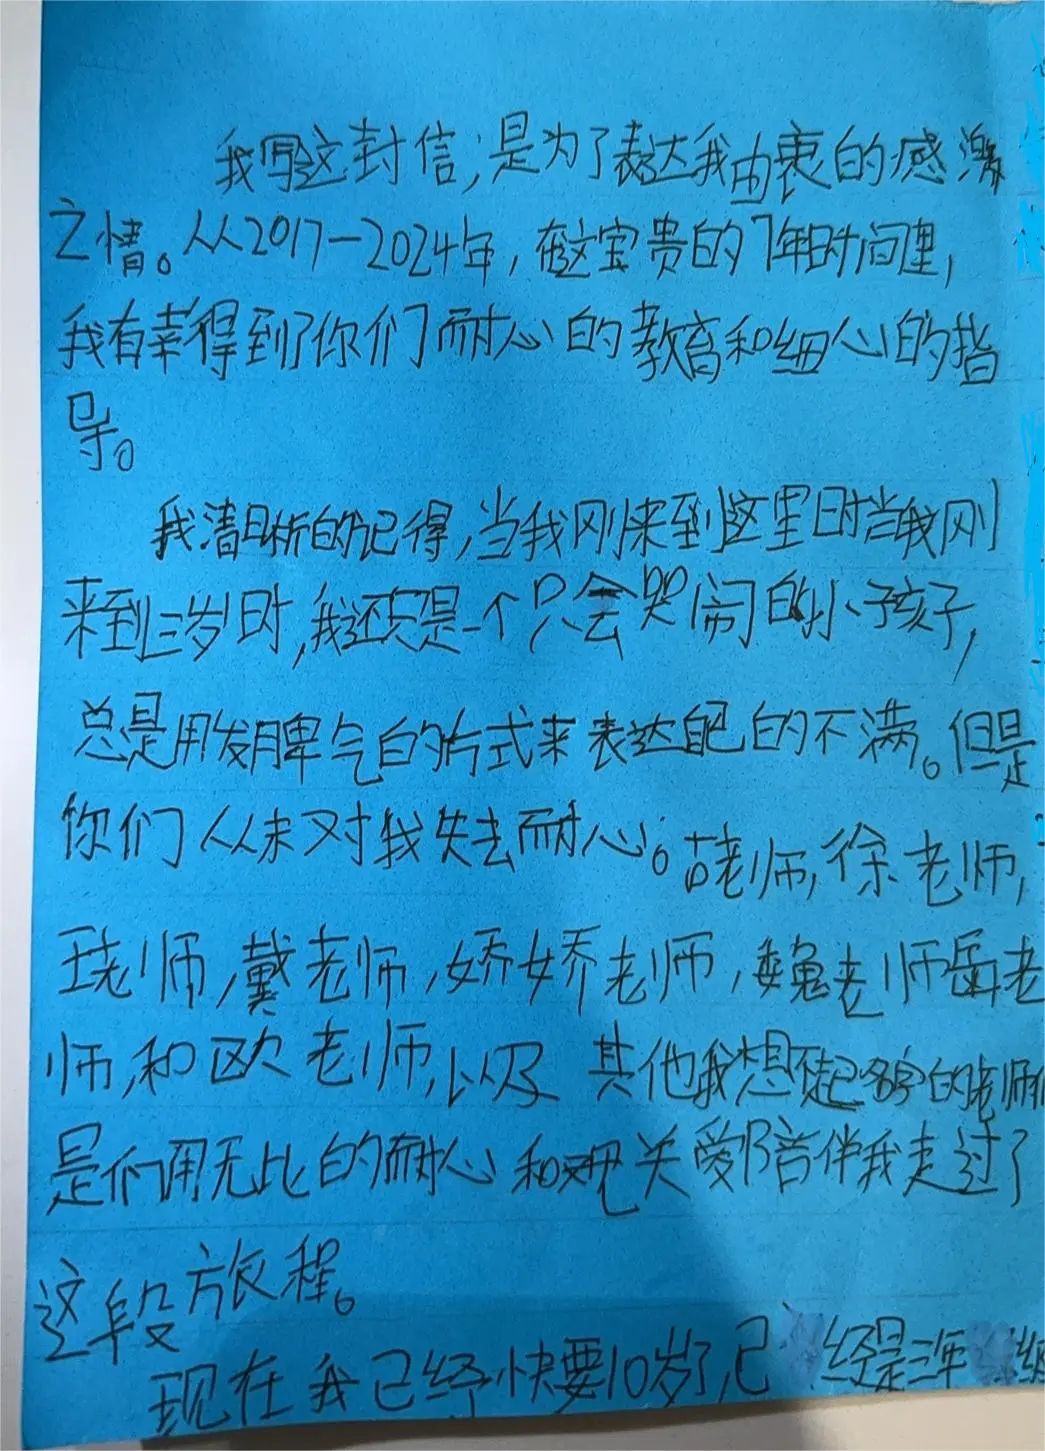 我写这封信,是为了表达我由衷的感激
之情。从2017-2024年,在这宝贵的7年时间里,
我有幸得到了你们耐心的教育和细心的指
导。
我清晰的记得,当我刚来到这里时当我刚
来到三岁时,我还只是一个只会哭闹的小孩子,
总是用发脾气的方式来表达自己的不满。但是
你们从未对我失去耐心。苗老师,徐老师,
王老师,戴老师,娇娇老师,魏老师岳老
师,和欧老师,以及其他我想不起名字的老师们
是你们用无比的耐心和关爱陪伴我走过了
这段旅程。
现在我已经快要10岁了,已经是三年级